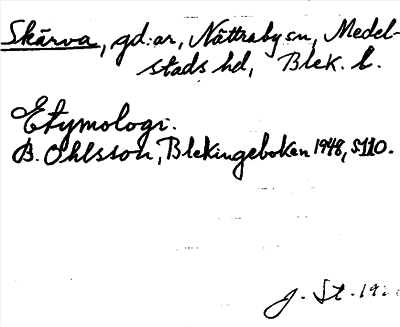 Skärva, gd:ar, Nättraby sn, Medel-
stads hd, Blek. l.
Etymologi.
B. Ohlsson, Blekingeboken 1948, s110.
J. St.